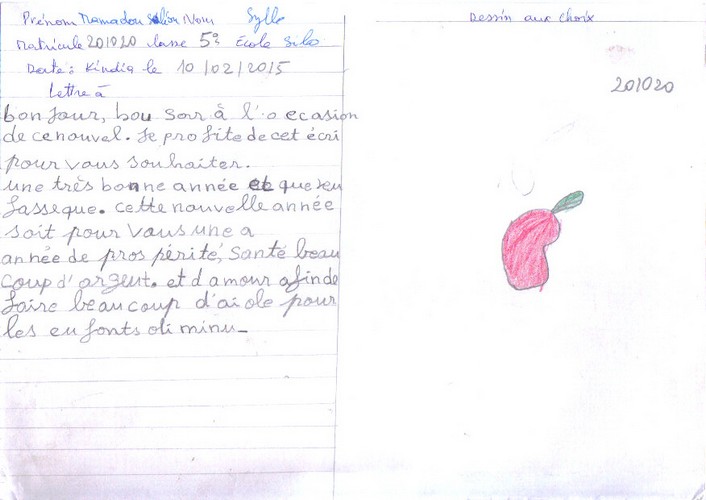 Prénom Mamadou Saliou Nom Sylla
Matricule 201020 classe 5e École Silo
Date : Kindia le 10/02/2015
Lettre à
bon Jour, bou soir à l'o ecasion
de cenouvel. Je profite de cet écri
pour vous souhaiter.
une très bonne année et que
fasseque. cette nouvelle année
soit pour vous une a
année de pros périté, santé beau
coup d'argent. et d amour afinde
faire beaucoup d'aide pour
les enfants di minu_
Dessin aux choix
201020